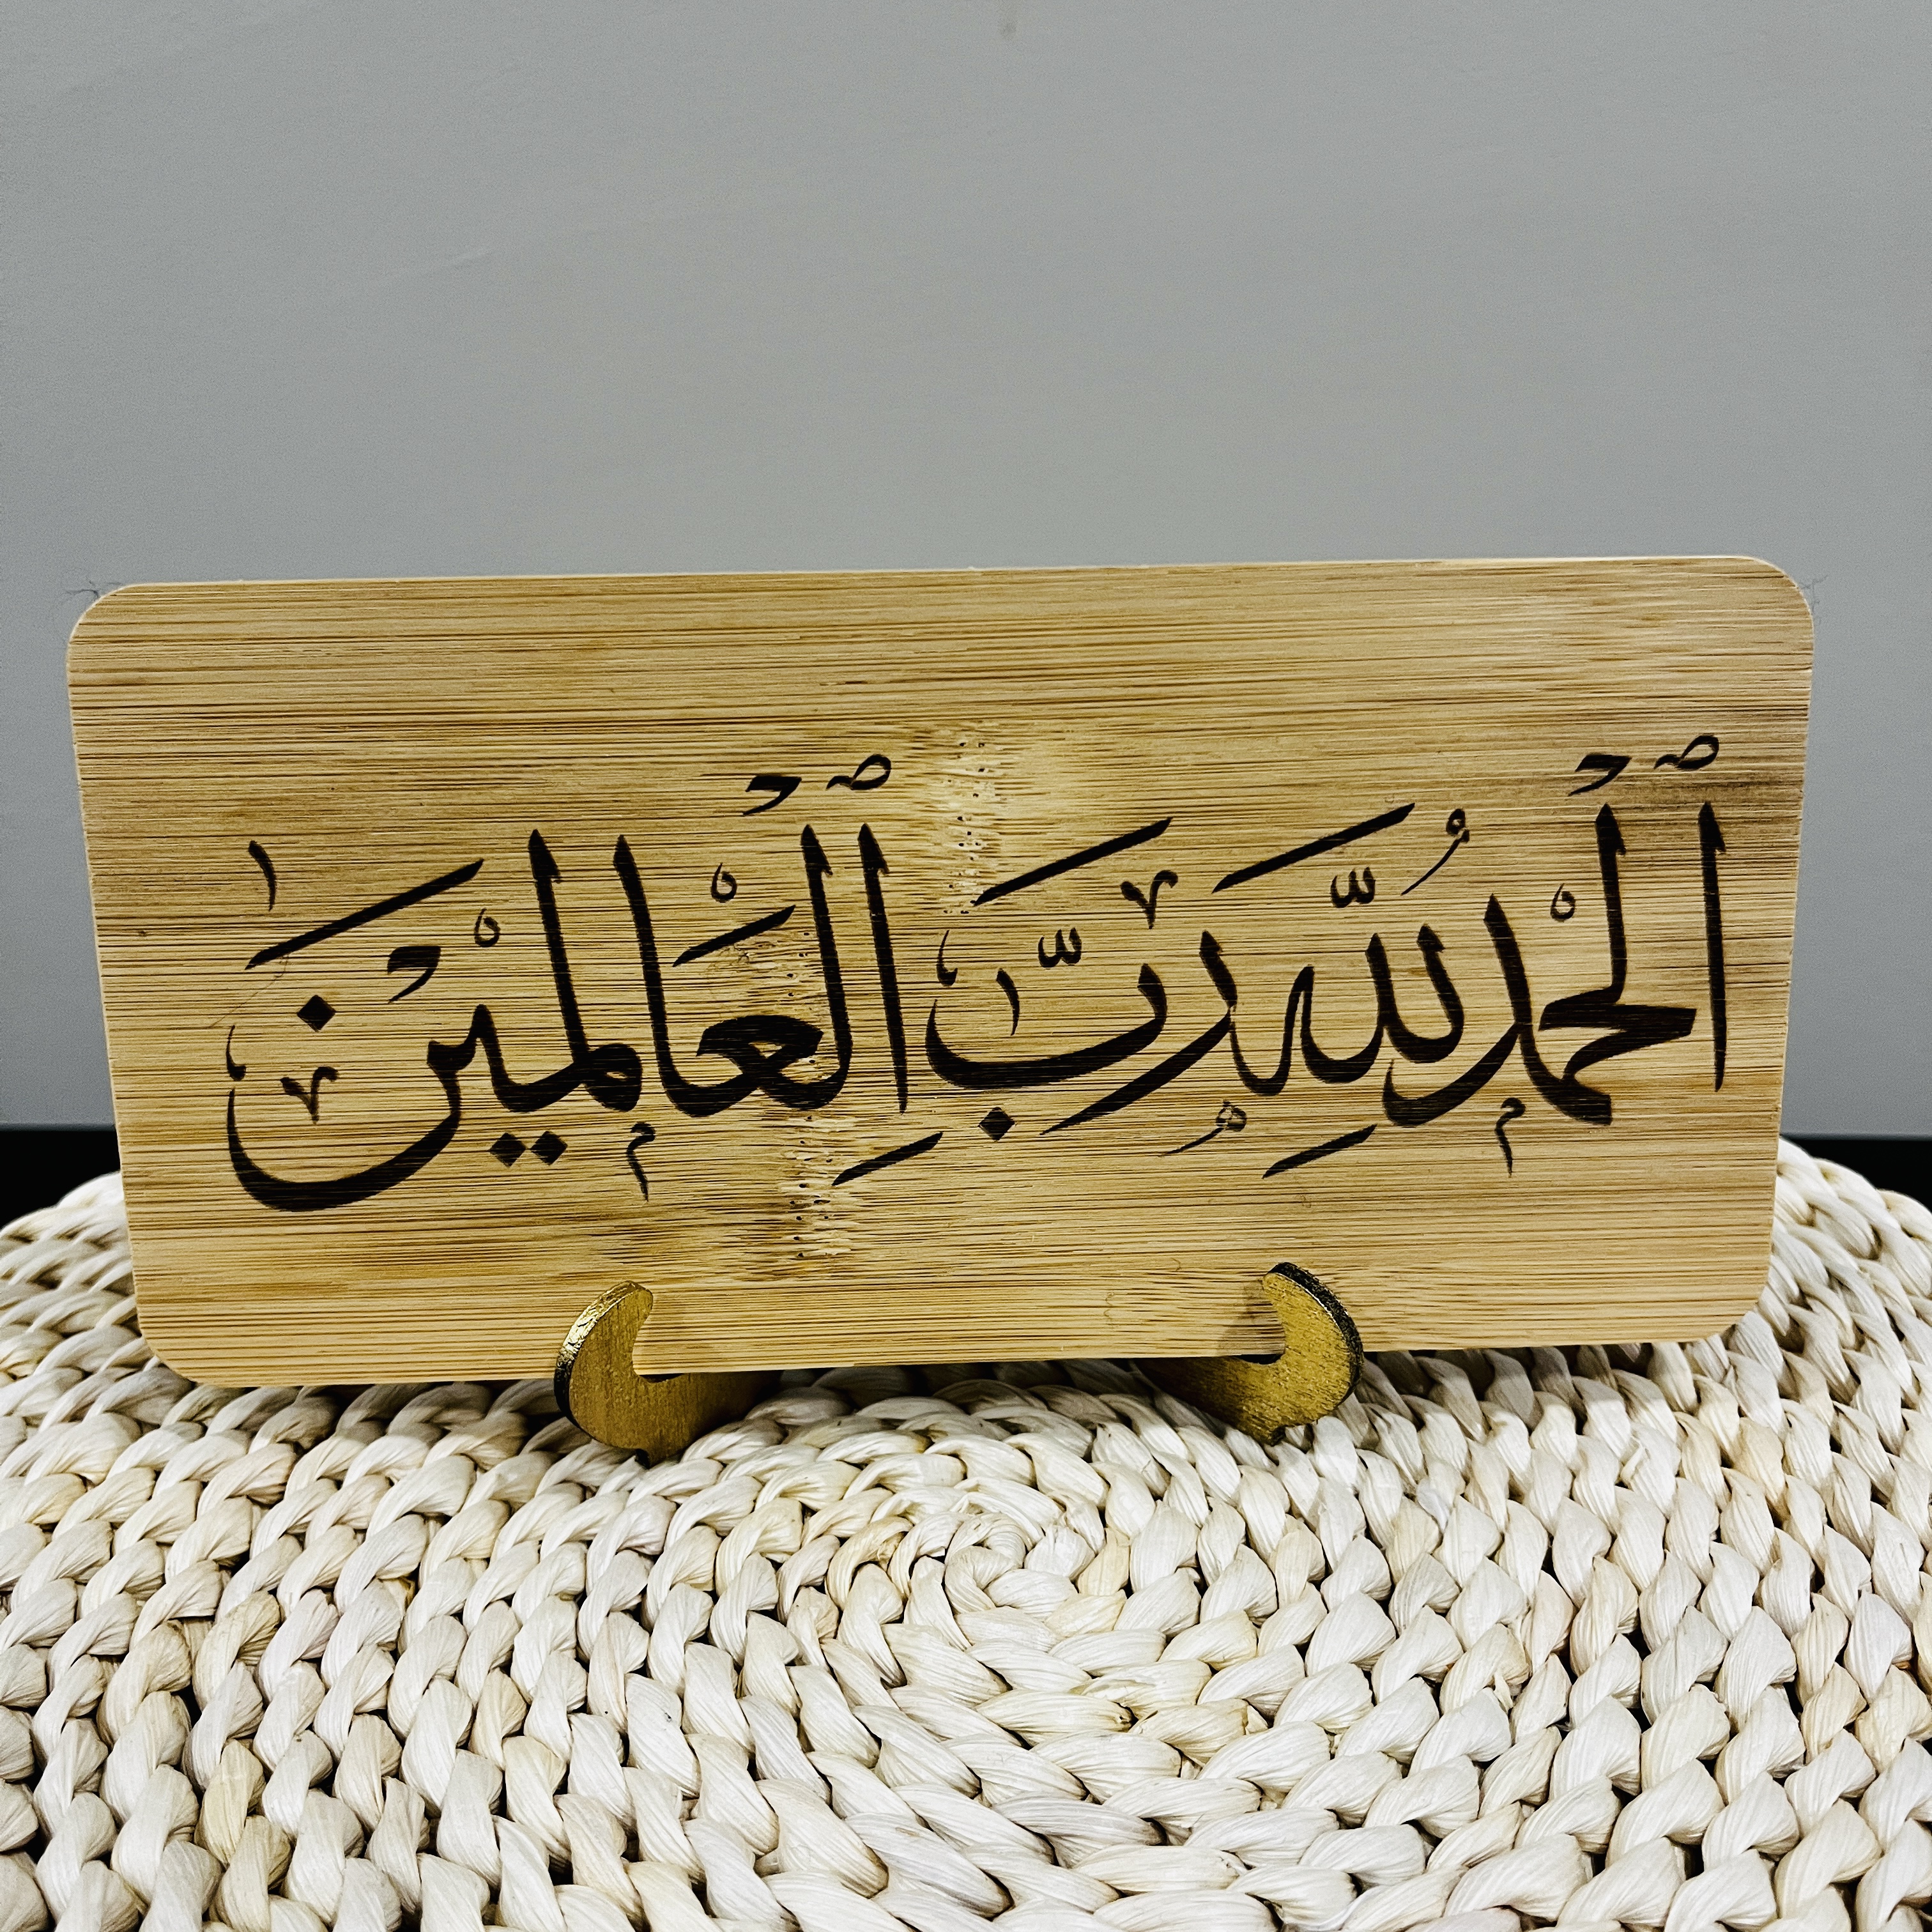 ٱلْحَمْدُ لِلَّهِ رَبِّ ٱلْعَالَمِيْنَ